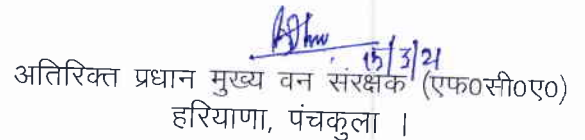 15/3/21
अतिरिक्त प्रधान मुख्य वन संरक्षक (एफ०सी०ए०)
हरियाणा, पंचकुला ।